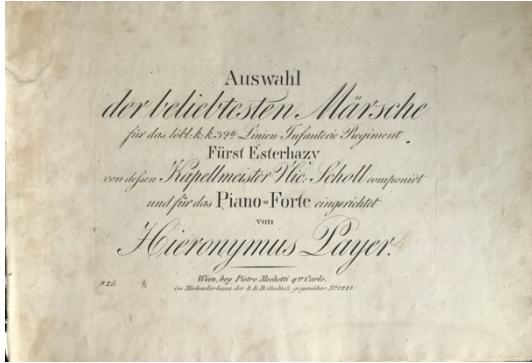 Auswahl
der beliebtesten Märsche
für das löbl. k. k. 32te Linien Infanterie Regiment
Fürst Esterhazy
von dessen Kapellmeister Nic. Scholl componirt
und für das Piano-Forte eingerichtet
von
Hieronymus Payer.
Wien, bey Pietro Mechetti qm Carlo,
825.
im Michaelerhaus der k. k. Reitschule gegenüber No 1221.